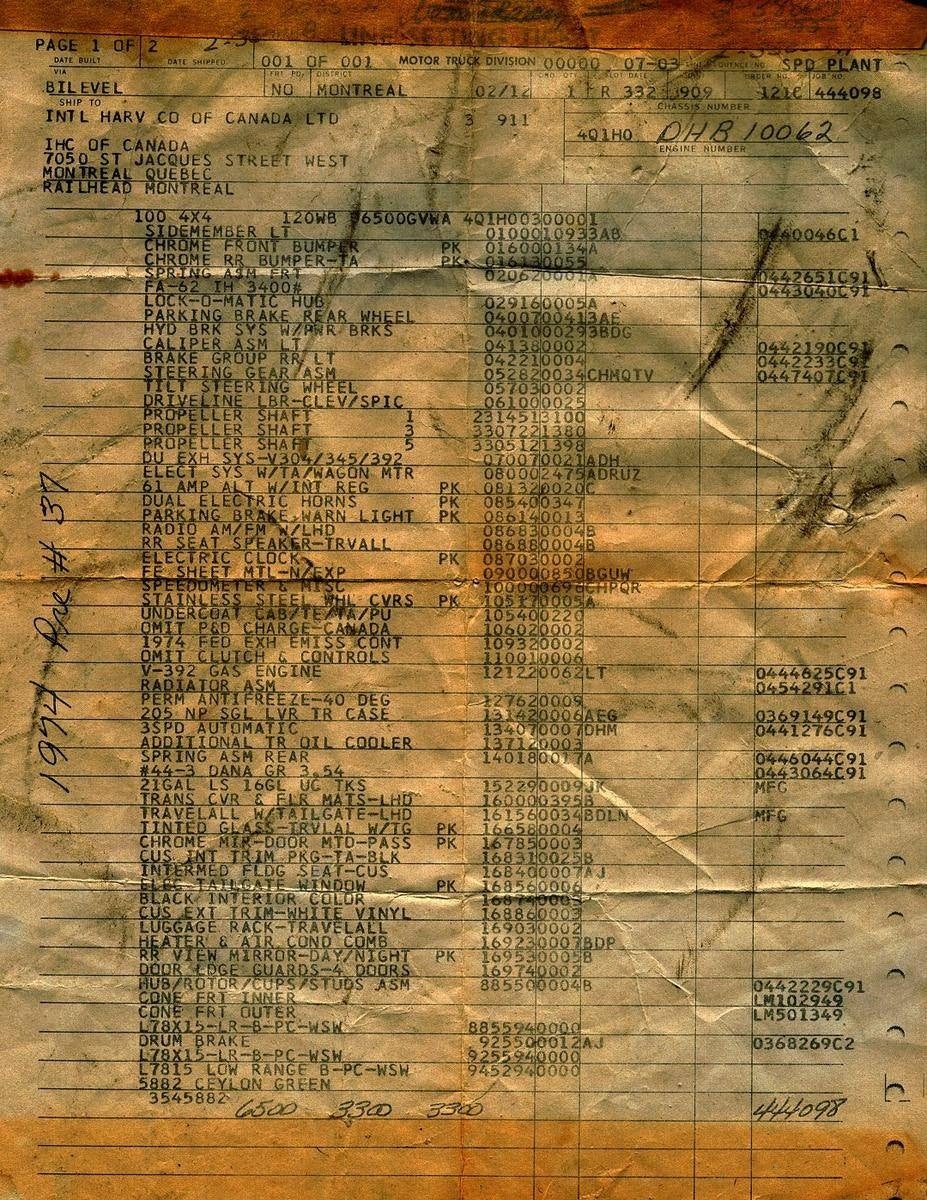 LINE SETTING TICKET
PAGE 1 OF 2
DATE BUILT DATE SHIPPED 001 OF 001 MOTOR TRUCK DIVISION 00000 07-03 SPD PLANT
VIA DISTRICT ORDER NO. JOB NO.
BILEVEL NO MONTREAL 02/12 1 R 332 909 121C 444098
SHIP TO CHASSIS NUMBER
INTL HARV CO OF CANADA LTD 3 911
4Q1H0 DHB10062
ENGINE NUMBER
IHC OF CANADA
7050 ST JACQUES STREET WEST
MONTREAL QUEBEC
RAILHEAD MONTREAL
100 4X4 120WB 6500GVWA 4Q1H00300001
SIDEMEMBER LT 0100010933AB 0460046C1
CHROME FRONT BUMPER PK 016000134A
CHROME RR BUMPER-TA PK 016130055
SPRING ASM FRT 020620001A 0442651C91
FA-62 IH 3400# 0443040C91
LOCK-O-MATIC HUB 029160005A
PARKING BRAKE REAR WHEEL 0400700413AE
HYD BRK SYS W/PWR BRKS 0401000293BDG
CALIPER ASM LT 041380002 0442190C91
BRAKE GROUP RR LT 042210004 0442233C91
STEERING GEAR/ASM 052820034CHMQTV 0447407C91
TILT STEERING WHEEL 057030002
DRIVELINE LBR-CLEV/SPIC 061000025
PROPELLER SHAFT 1 2314513100
PROPELLER SHAFT 3 3307221380
PROPELLER SHAFT 5 3305121398
DU EXH SYS-V304/345/392 070070021ADH
ELECT SYS W/TA/WAGON MTR 080002475ADRUZ
61 AMP ALT W/INT REG PK 081320020C
DUAL ELECTRIC HORNS PK 085400347
PARKING BRAKE WARN LIGHT PK 086140013
RADIO AM/FM W/LHD 086830004B
RR SEAT SPEAKER-TRVALL 086880004B
ELECTRIC CLOCK PK 087030002
FE SHEET MTL-N/EXP 090000850BGUW
SPEEDOMETER & MISC 100000698CHPQR
STAINLESS STEEL WHL CVRS PK 105170005A
UNDERCOAT CAB/TE/TA/PU 105400220
OMIT P&D CHARGE-CANADA 106020002
1974 FED EXH EMISS CONT 109320002
OMIT CLUTCH & CONTROLS 110010006
V-392 GAS ENGINE 121220062LT 0444625C91
RADIATOR ASM 0454291C1
PERM ANTIFREEZE-40 DEG 127620009
205 NP SGL LVR TR CASE 131420006AEG 0369149C91
3SPD AUTOMATIC 134070007DHM 0441276C91
ADDITIONAL TR OIL COOLER 137120003
SPRING ASM REAR 140180017A 0446044C91
#44-3 DANA GR 3.54 0443064C91
21GAL LS 16GL UC TKS 152290009JK MFG
TRANS CVR & FLR MATS-LHD 160000395B
TRAVELALL W/TAILGATE-LHD 161560034BDLN MFG
TINTED GLASS-TRVLAL W/TG PK 166580004
CHROME MIR-DOOR MTD-PASS PK 167850003
CUS INT TRIM PKG-TA-BLK 168310025B
INTERMED FLDG SEAT-CUS 168400007AJ
ELEC TAILGATE WINDOW PK 168560006
BLACK INTERIOR COLOR 168740003
CUS EXT TRIM-WHITE VINYL 168860003
LUGGAGE RACK-TRAVELALL 169030002
HEATER & AIR COND COMB 169230007BDP
RR VIEW MIRROR-DAY/NIGHT PK 169530005B
DOOR EDGE GUARDS-4 DOORS 169740002
HUB/ROTOR/CUPS/STUDS ASM 885500004B 0442229C91
CONE FRT INNER LM102949
CONE FRT OUTER LM501349
L78X15-LR-B-PC-WSW 8855940000
DRUM BRAKE 925500012AJ 0368269C2
L78X15-LR-B-PC-WSW 9255940000
L7815 LOW RANGE B-PC-WSW 9452940000
5882 CEYLON GREEN
3545882
6500 3300 3300 444098
1974 # 137